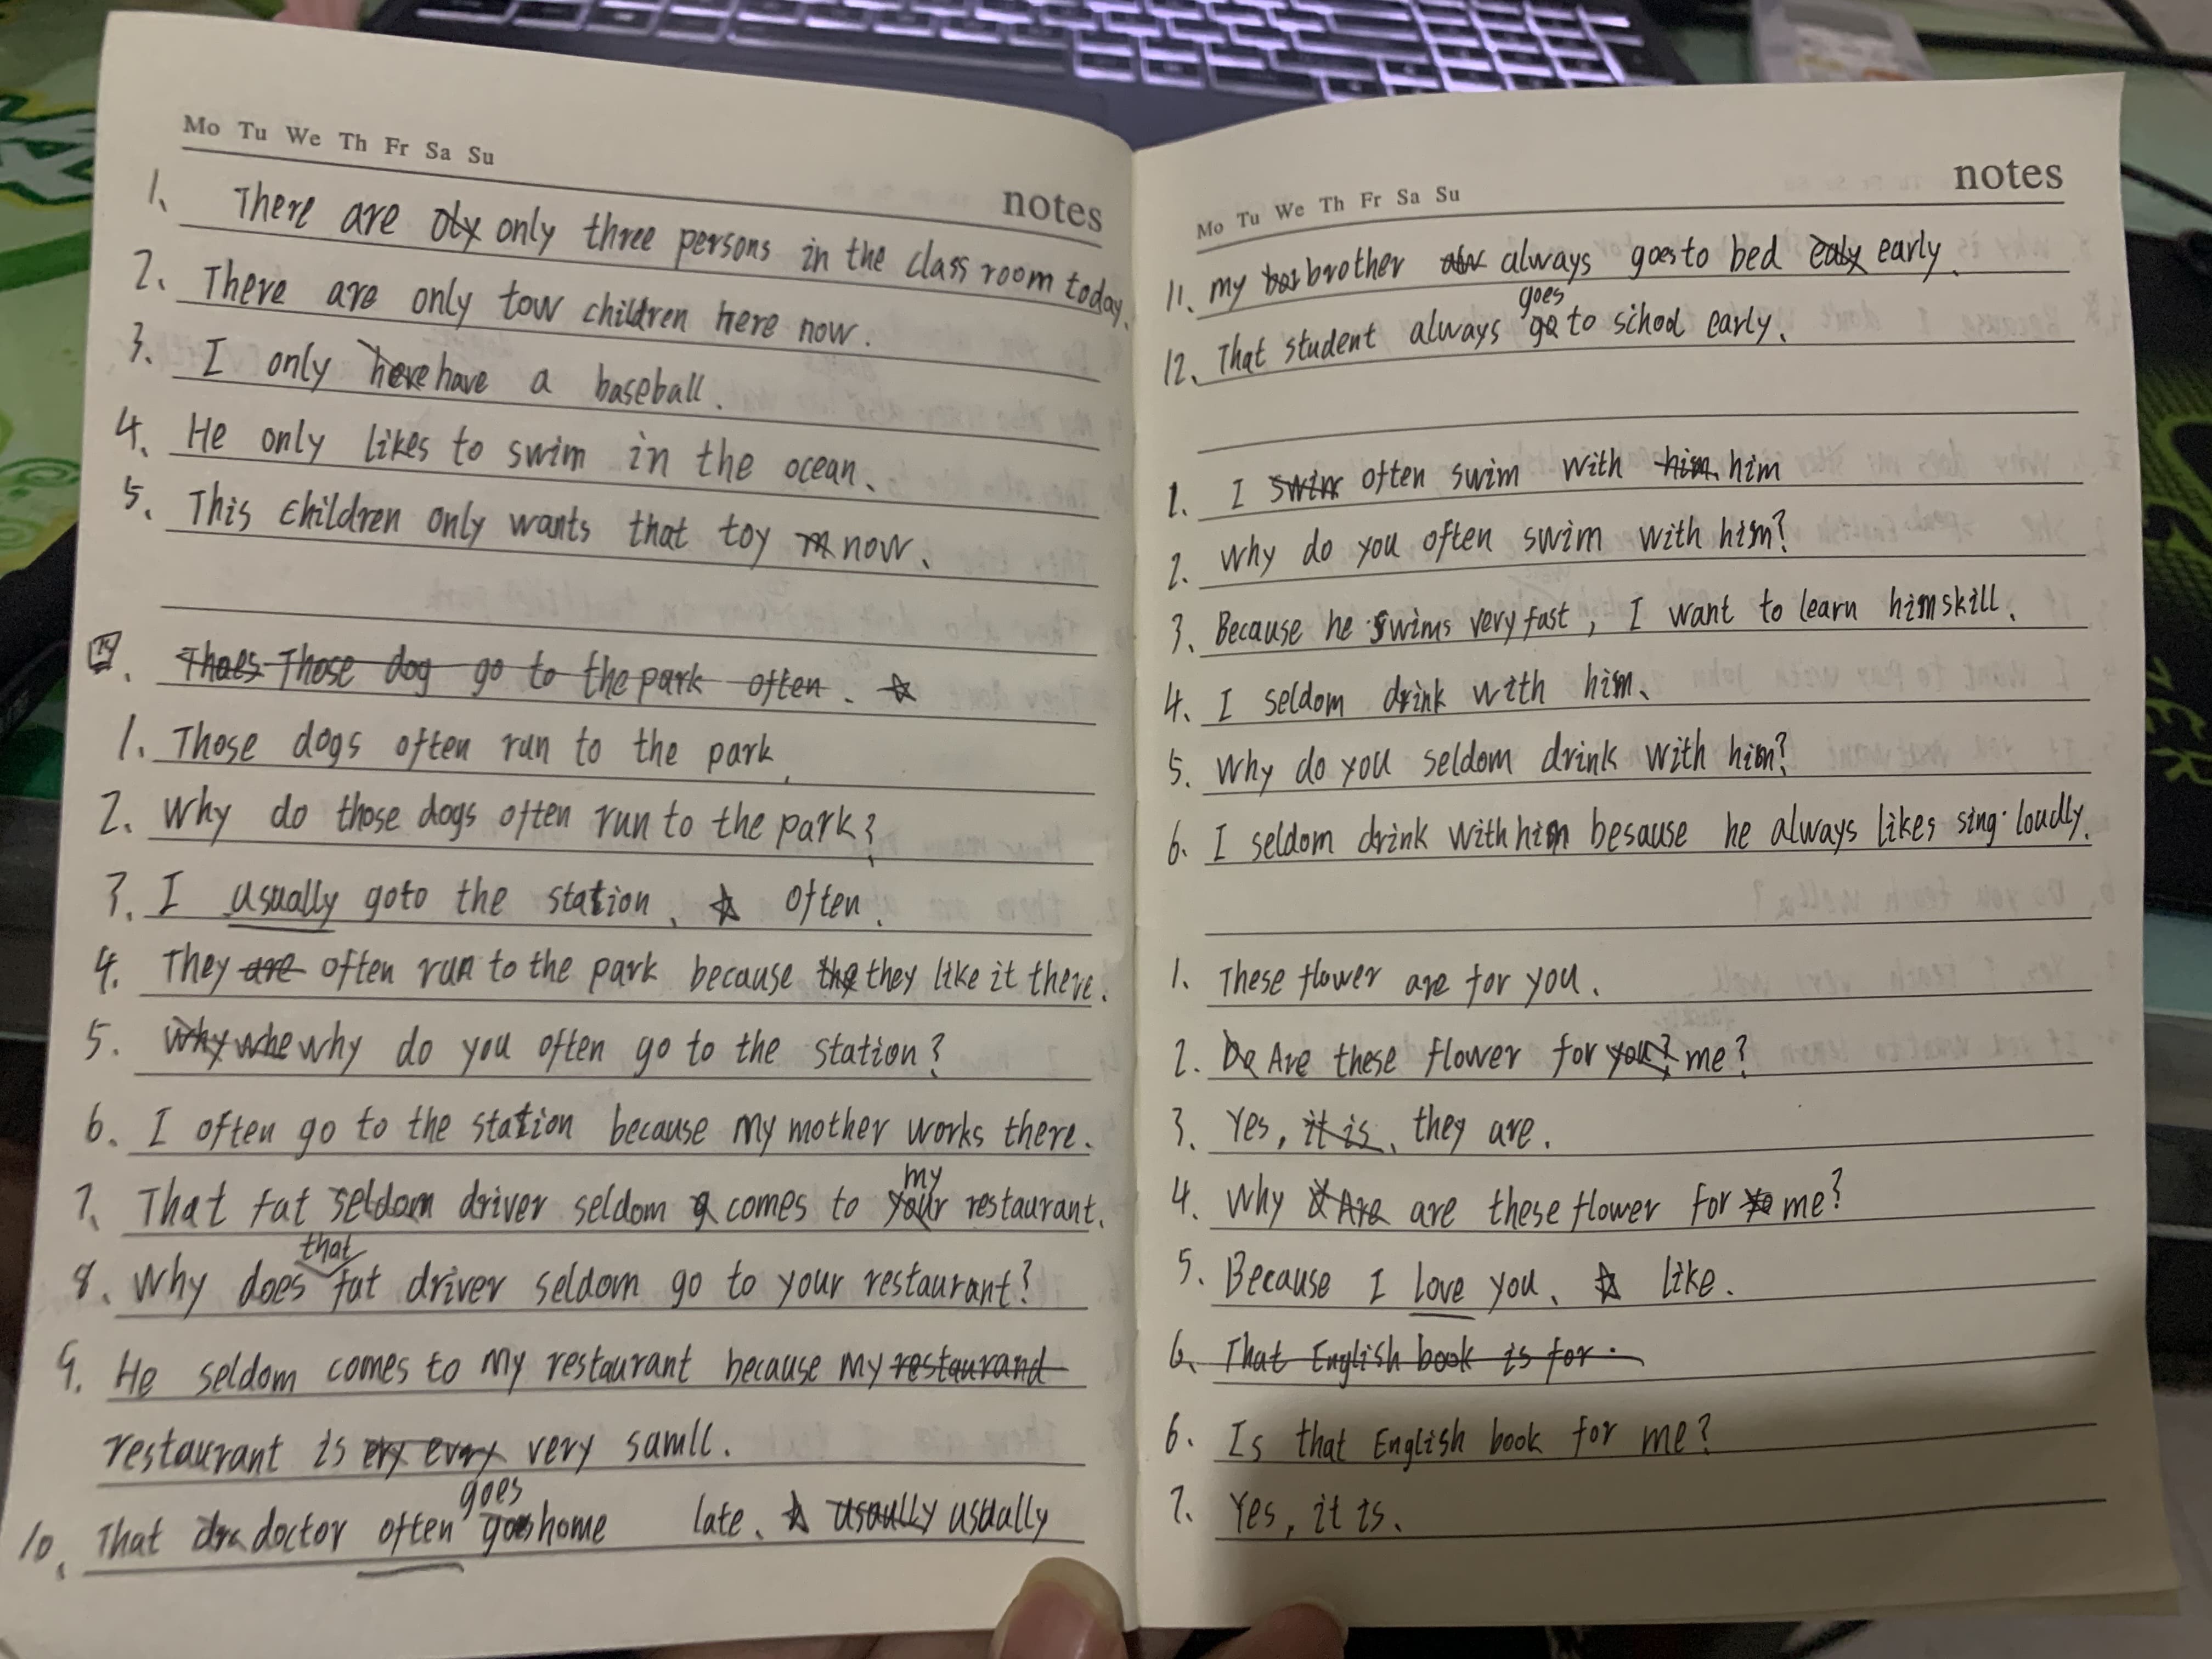 Mo Tu We Th Fr Sa Su
notes
1. There are oly only three persons in the class room today.
2. There are only tow children here now.
3. I only here have a baseball.
4. He only likes to swim in the ocean.
5. This children only wants that toy now.
Thoes Those dog go to the park often. ☆
1. Those dogs often run to the park.
2. Why do those dogs often run to the park?
3. I usually goto the station. ☆ often.
4. They are often run to the park because the they like it there.
5. Why whe why do you often go to the station?
6. I often go to the station because my mother works there.
my
7. That fat seldom driver seldom g comes to your restaurant.
that
8. Why does fat driver seldom go to your restaurant?
9. He seldom comes to my restaurant because my restaurand
restaurant is ery evry very samll.
goes
10. That dra doctor often goes home late. ☆ usaully usually
Mo Tu We Th Fr Sa Su
notes
11. my bor brother alw always goes to bed ealy early.
goes
12. That student always go to school early.
1. I swim often swim with him. him
2. Why do you often swim with him?
3. Because he swims very fast, I want to learn him skill.
4. I seldom drink with him.
5. Why do you seldom drink with him?
6. I seldom drink with him besause he always likes sing loudly.
1. These flower are for you.
2. Do Are these flower for you? me?
3. Yes, it is, they are.
4. Why Are are these flower for yo me?
5. Because I love you. ☆ like.
6. That English book is for.
6. Is that English book for me?
7. Yes, it is.